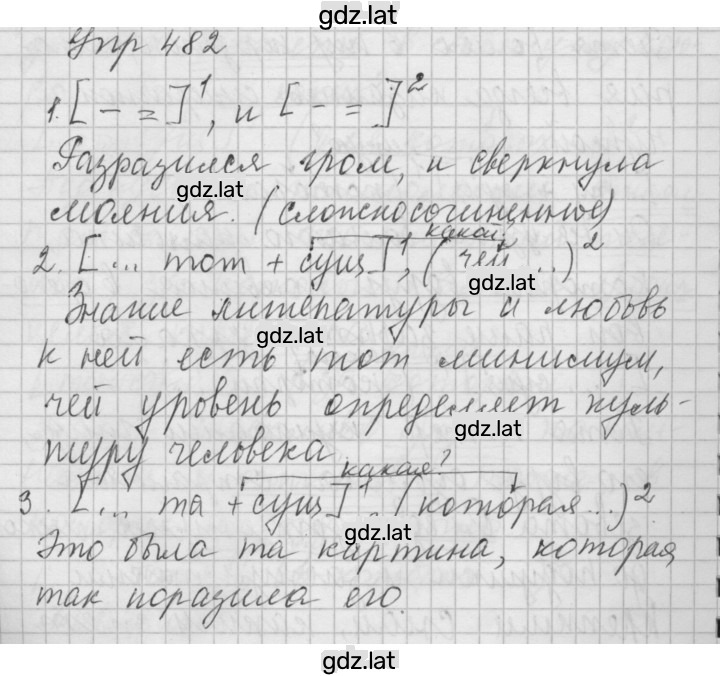 gdz.lat
Упр 482
1. [ – = ]¹, и [ – = ]²
Разразился гром, и сверкнула
gdz.lat
молния. (сложносочиненное)
какой?
2. [... тот + сущ]¹, (чей ...)²
gdz.lat
Знание литературы и любовь
gdz.lat
к ней есть тот минимум,
чей уровень определяет куль-
gdz.lat
туру человека
какая?
3. [... та + сущ]¹, (которая...)²
gdz.lat
Это была та картина, которая
так поразила его.
gdz.lat
gdz.lat